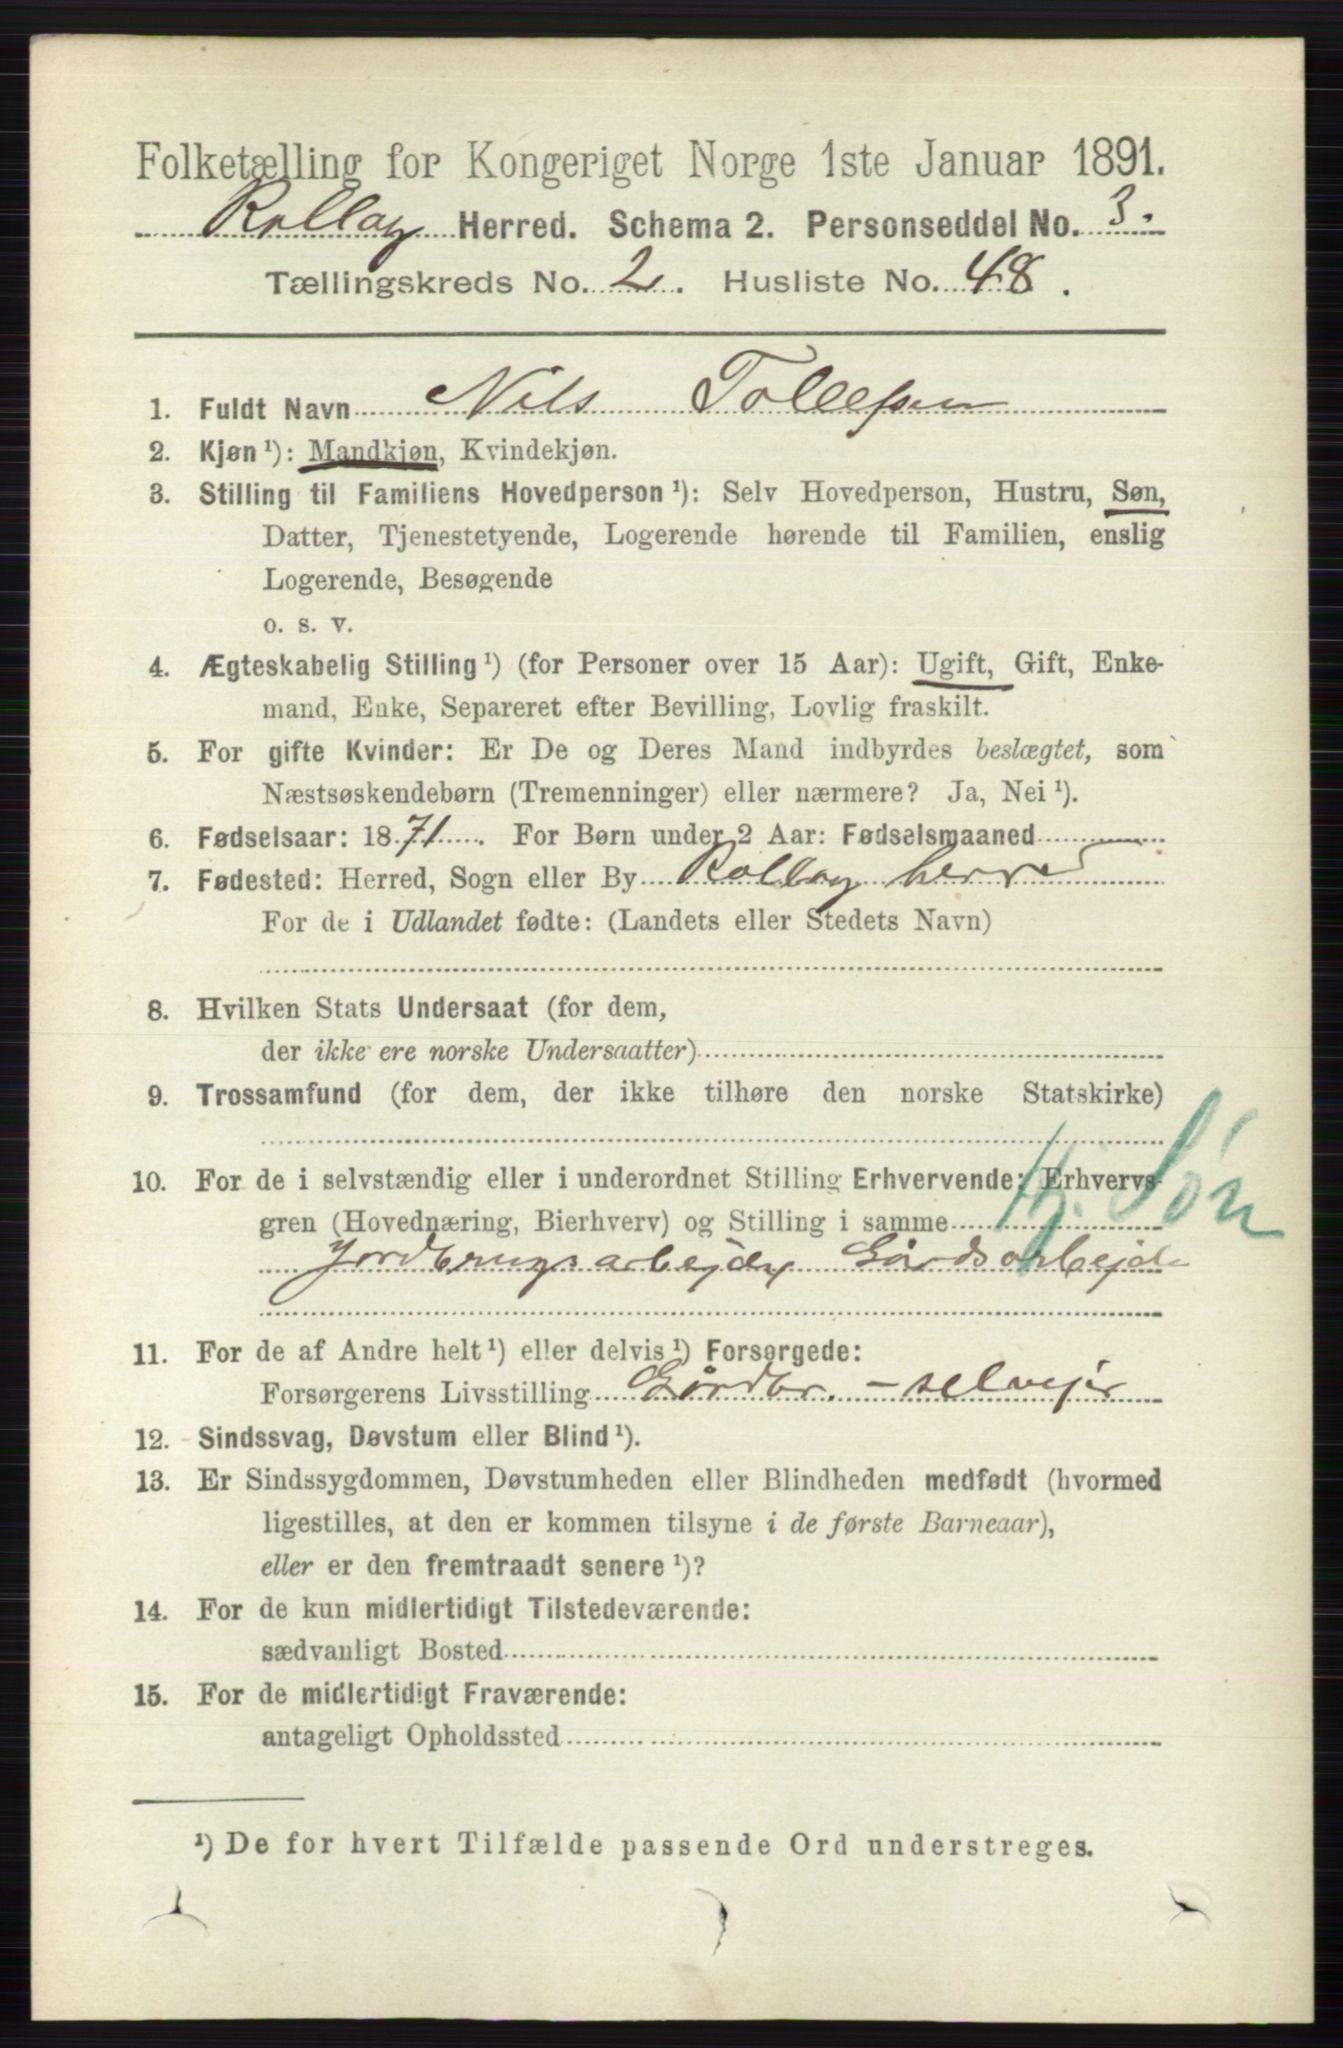 Folketælling for Kongeriget Norge 1ste Januar 1891.
Rollag Herred. Schema 2. Personseddel No. 3.
Tællingskreds No. 2. Husliste No. 48.
1. Fuldt Navn Nils Tollefsen
2. Kjøn ¹): Mandkjøn, Kvindekjøn.
3. Stilling til Familiens Hovedperson ¹): Selv Hovedperson, Hustru, Søn,
Datter, Tjenestetyende, Logerende hørende til Familien, enslig
Logerende, Besøgende
o. s. v.
4. Ægteskabelig Stilling ¹) (for Personer over 15 Aar): Ugift, Gift, Enke-
mand, Enke, Separeret efter Bevilling, Lovlig fraskilt.
5. For gifte Kvinder: Er De og Deres Mand indbyrdes beslægtet, som
Næstsøskendebørn (Tremenninger) eller nærmere? Ja, Nei ¹).
6. Fødselsaar: 1871. For Børn under 2 Aar: Fødselsmaaned
7. Fødested: Herred, Sogn eller By Rollag herred
For de i Udlandet fødte: (Landets eller Stedets Navn)
8. Hvilken Stats Undersaat (for dem,
der ikke ere norske Undersaatter)
9. Trossamfund (for dem, der ikke tilhøre den norske Statskirke)
10. For de i selvstændig eller i underordnet Stilling Erhvervende: Erhvervs-
gren (Hovednæring, Bierhverv) og Stilling i samme Hj. Søn
Jordbrugsarbejde Gårdsarbejde
11. For de af Andre helt ¹) eller delvis ¹) Forsørgede:
Forsørgerens Livsstilling Gårdbr. - selvejer
12. Sindssvag, Døvstum eller Blind ¹).
13. Er Sindssygdommen, Døvstumheden eller Blindheden medfødt (hvormed
ligestilles, at den er kommen tilsyne i de første Barneaar),
eller er den fremtraadt senere ¹)?
14. For de kun midlertidigt Tilstedeværende:
sædvanligt Bosted
15. For de midlertidigt Fraværende:
antageligt Opholdssted
¹) De for hvert Tilfælde passende Ord understreges.